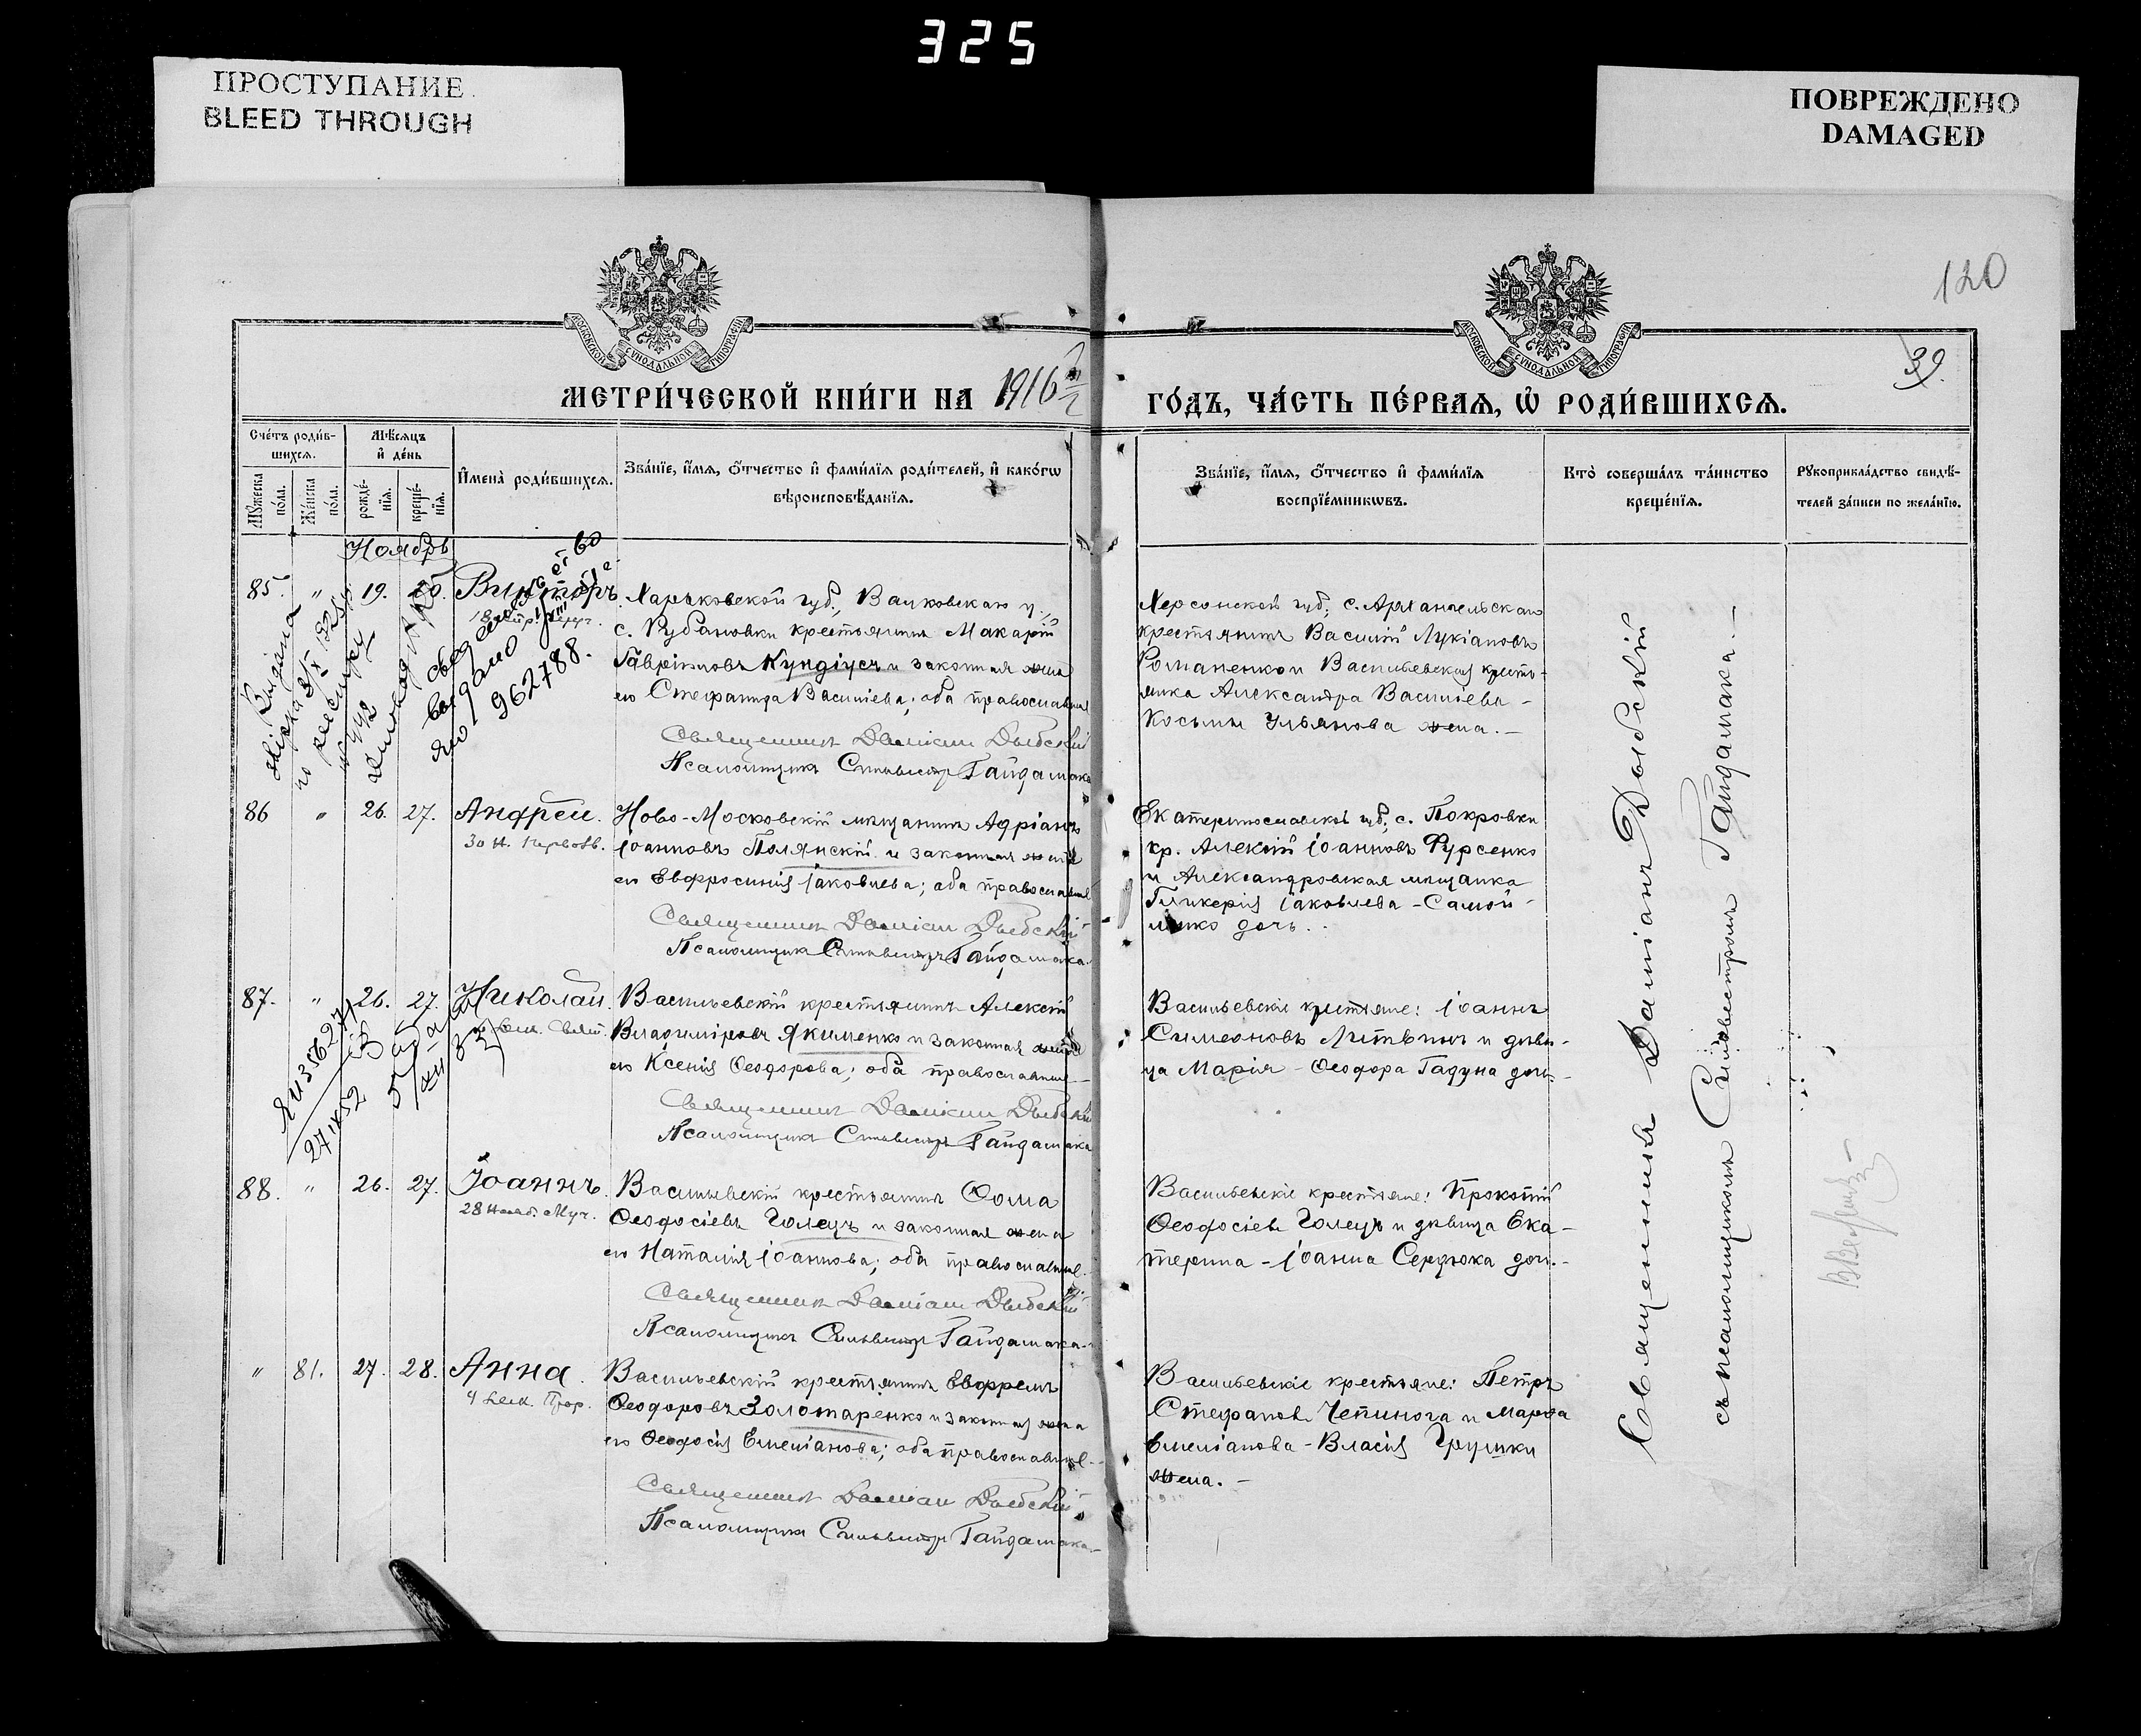 325
ПРОСТУПАНИЕ
BLEED THROUGH
ПОВРЕЖДЕНО
DAMAGED
120
МОСКОВСКОЙ СѴНОДАЛЬНОЙ ТИПОГРАФІИ
МОСКОВСКОЙ СѴНОДАЛЬНОЙ ТИПОГРАФІИ
39.
МЕТРИ́ЧЕСКОЙ КНИ́ГИ НА 1916
ГО́ДЪ, ЧА́СТЬ ПЕ́РВАЯ, Ѡ҆ РОДИ́ВШИХСѦ.
Сче́тъ роди́в-
шихсѧ.
Мѣ́сѧцъ
и҆ де́нь
Мꙋ́жеска
по́ла.
Же́нска
по́ла.
рожде́-
нїѧ.
креще́-
нїѧ.
И҆мена̀ роди́вшихсѧ.
Зва́нїе, и҆́мѧ, ѻ҆́тчество и҆ фами́лїѧ роди́телей, и҆ како́гѡ
вѣроисповѣ́данїѧ.
Зва́нїе, и҆́мѧ, ѻ҆́тчество и҆ фами́лїѧ
воспрїе́мникѡвъ.
Кто̀ соверша́лъ та́инство
креще́нїѧ.
Рꙋкоприкла́дство свидѣ́-
телей за́писи по жела́нїю.
Ноябрь
85. " 19. 20. Викторъ
Харьковской губ., Валковскаго у.,
с. Рубановки крестьянинъ Макарій
Гавріиловъ Кундіусъ и законная жена
его Стефанида Василіева; оба православные
Священникъ Даміанъ Дыбскій
Псаломщикъ Сильвестръ Гайдамака
Херсонской губ., с. Архангельскаго
крестьянинъ Василій Лукіановъ
Романенко и Васильевская кресть-
янка Александра Василіева -
Косьмы Ульянова жена. -
Выдана
по реестру
выдано
962788.
86 " 26. 27. Андрей.
30 Н. Первозв.
Ново-Московскій мѣщанинъ Адріанъ
Іоанновъ Полянскій и законная жена
его Евфросинія Іаковлева; оба православные
Священникъ Даміанъ Дыбскій
Псаломщикъ Сильвестръ Гайдамака.
Екатеринославской губ., с. Покровки
кр. Алексій Іоанновъ Фурсенко
и Александровская мѣщанка
Гликерія Іаковлева - Самой-
ленко дочь.
87. " 26. 27. Николай
Васильевскій крестьянинъ Алексій
Владиміровъ Якименко и законная жена
его Ксенія Ѳеодорова; оба православные
Священникъ Даміанъ Дыбскій
Псаломщикъ Сильвестръ Гайдамака
Васильевскіе крестьяне: Іоаннъ
Симеоновъ Литвинъ и дѣви-
ца Марія - Ѳеодора Гадуна дочь.-
88. " 26. 27. Іоаннъ.
28 Нояб. Муч.
Васильевскій крестьянинъ Ѳома
Ѳеодосіевъ Голецъ и законная жена
его Наталія Іоаннова; оба православные.
Священникъ Даміанъ Дыбскій
Псаломщикъ Сильвестръ Гайдамака.
Васильевскіе крестьяне: Прокопій
Ѳеодосіевъ Голецъ и дѣвица Ека-
терина - Іоанна Сердюка дочь.-
" 81. 27. 28. Анна.
9 Дек. Прор.
Васильевскій крестьянинъ Евфремъ
Ѳеодоровъ Золотаренко и законная жена
его Ѳеодосія Емеліанова; оба православные.
Священникъ Даміанъ Дыбскій
Псаломщикъ Сильвестръ Гайдамака.
Васильевскіе крестьяне: Петръ
Стефановъ Чепинога и Марѳа
Емеліанова - Власія Грушки
жена. -
Священникъ Даміанъ Дыбскій
съ псаломщикомъ Сильвестромъ Гайдамака. -